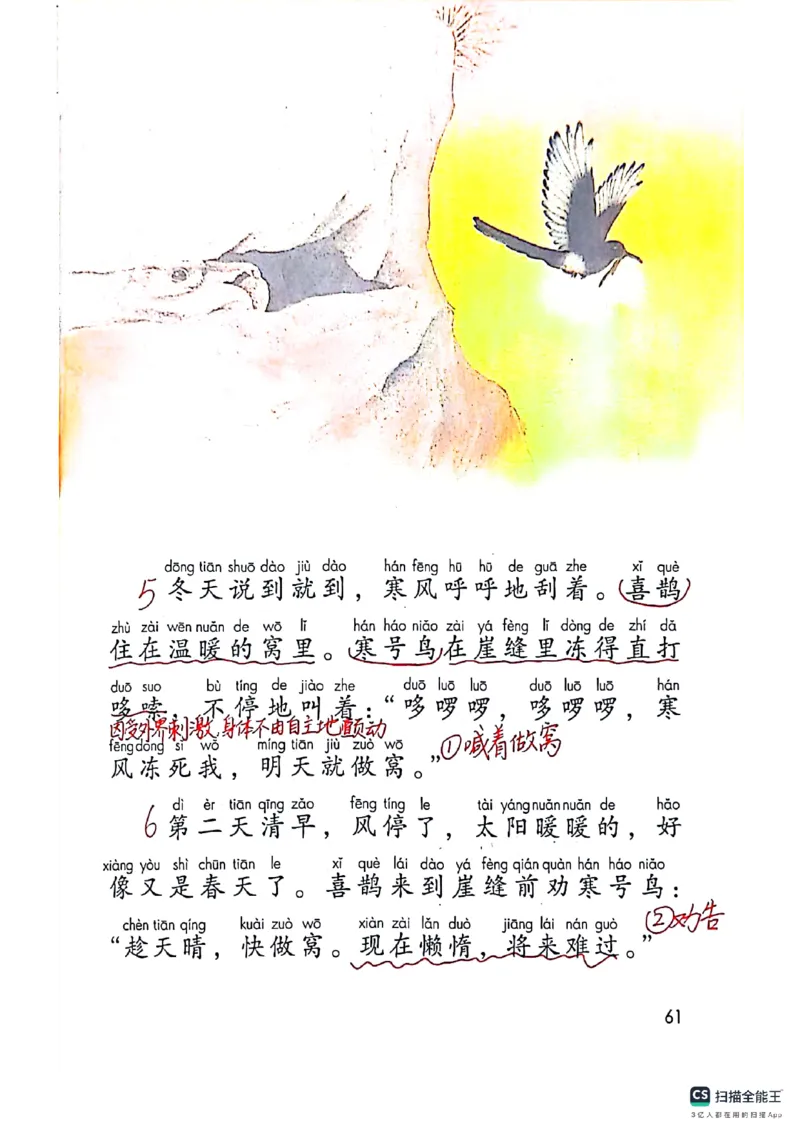 dōng tiān shuō dào jiù dào hán fēng hū hū de guā zhe xǐ què
5 冬天说到就到，寒风呼呼地刮着。喜鹊
zhù zài wēn nuǎn de wō lǐ hán háo niǎo zài yá fèng lǐ dòng de zhí dǎ
住在温暖的窝里。寒号鸟在崖缝里冻得直打
duō suo bù tíng de jiào zhe duō luō luō duō luō luō hán
哆嗦，不停地叫着：“哆啰啰，哆啰啰，寒
因受外界刺激，身体不由自主地颤动
fēng dòng sǐ wǒ míng tiān jiù zuò wō
风冻死我，明天就做窝。”
①喊着做窝
dì èr tiān qīng zǎo fēng tíng le tài yáng nuǎn nuǎn de hǎo
6 第二天清早，风停了，太阳暖暖的，好
xiàng yòu shì chūn tiān le xǐ què lái dào yá fèng qián quàn hán háo niǎo
像又是春天了。喜鹊来到崖缝前劝寒号鸟：
chèn tiān qíng kuài zuò wō xiàn zài lǎn duò jiāng lái nán guò
“趁天晴，快做窝。现在懒惰，将来难过。”
②劝告
61
CS 扫描全能王
3亿人都在用的扫描App